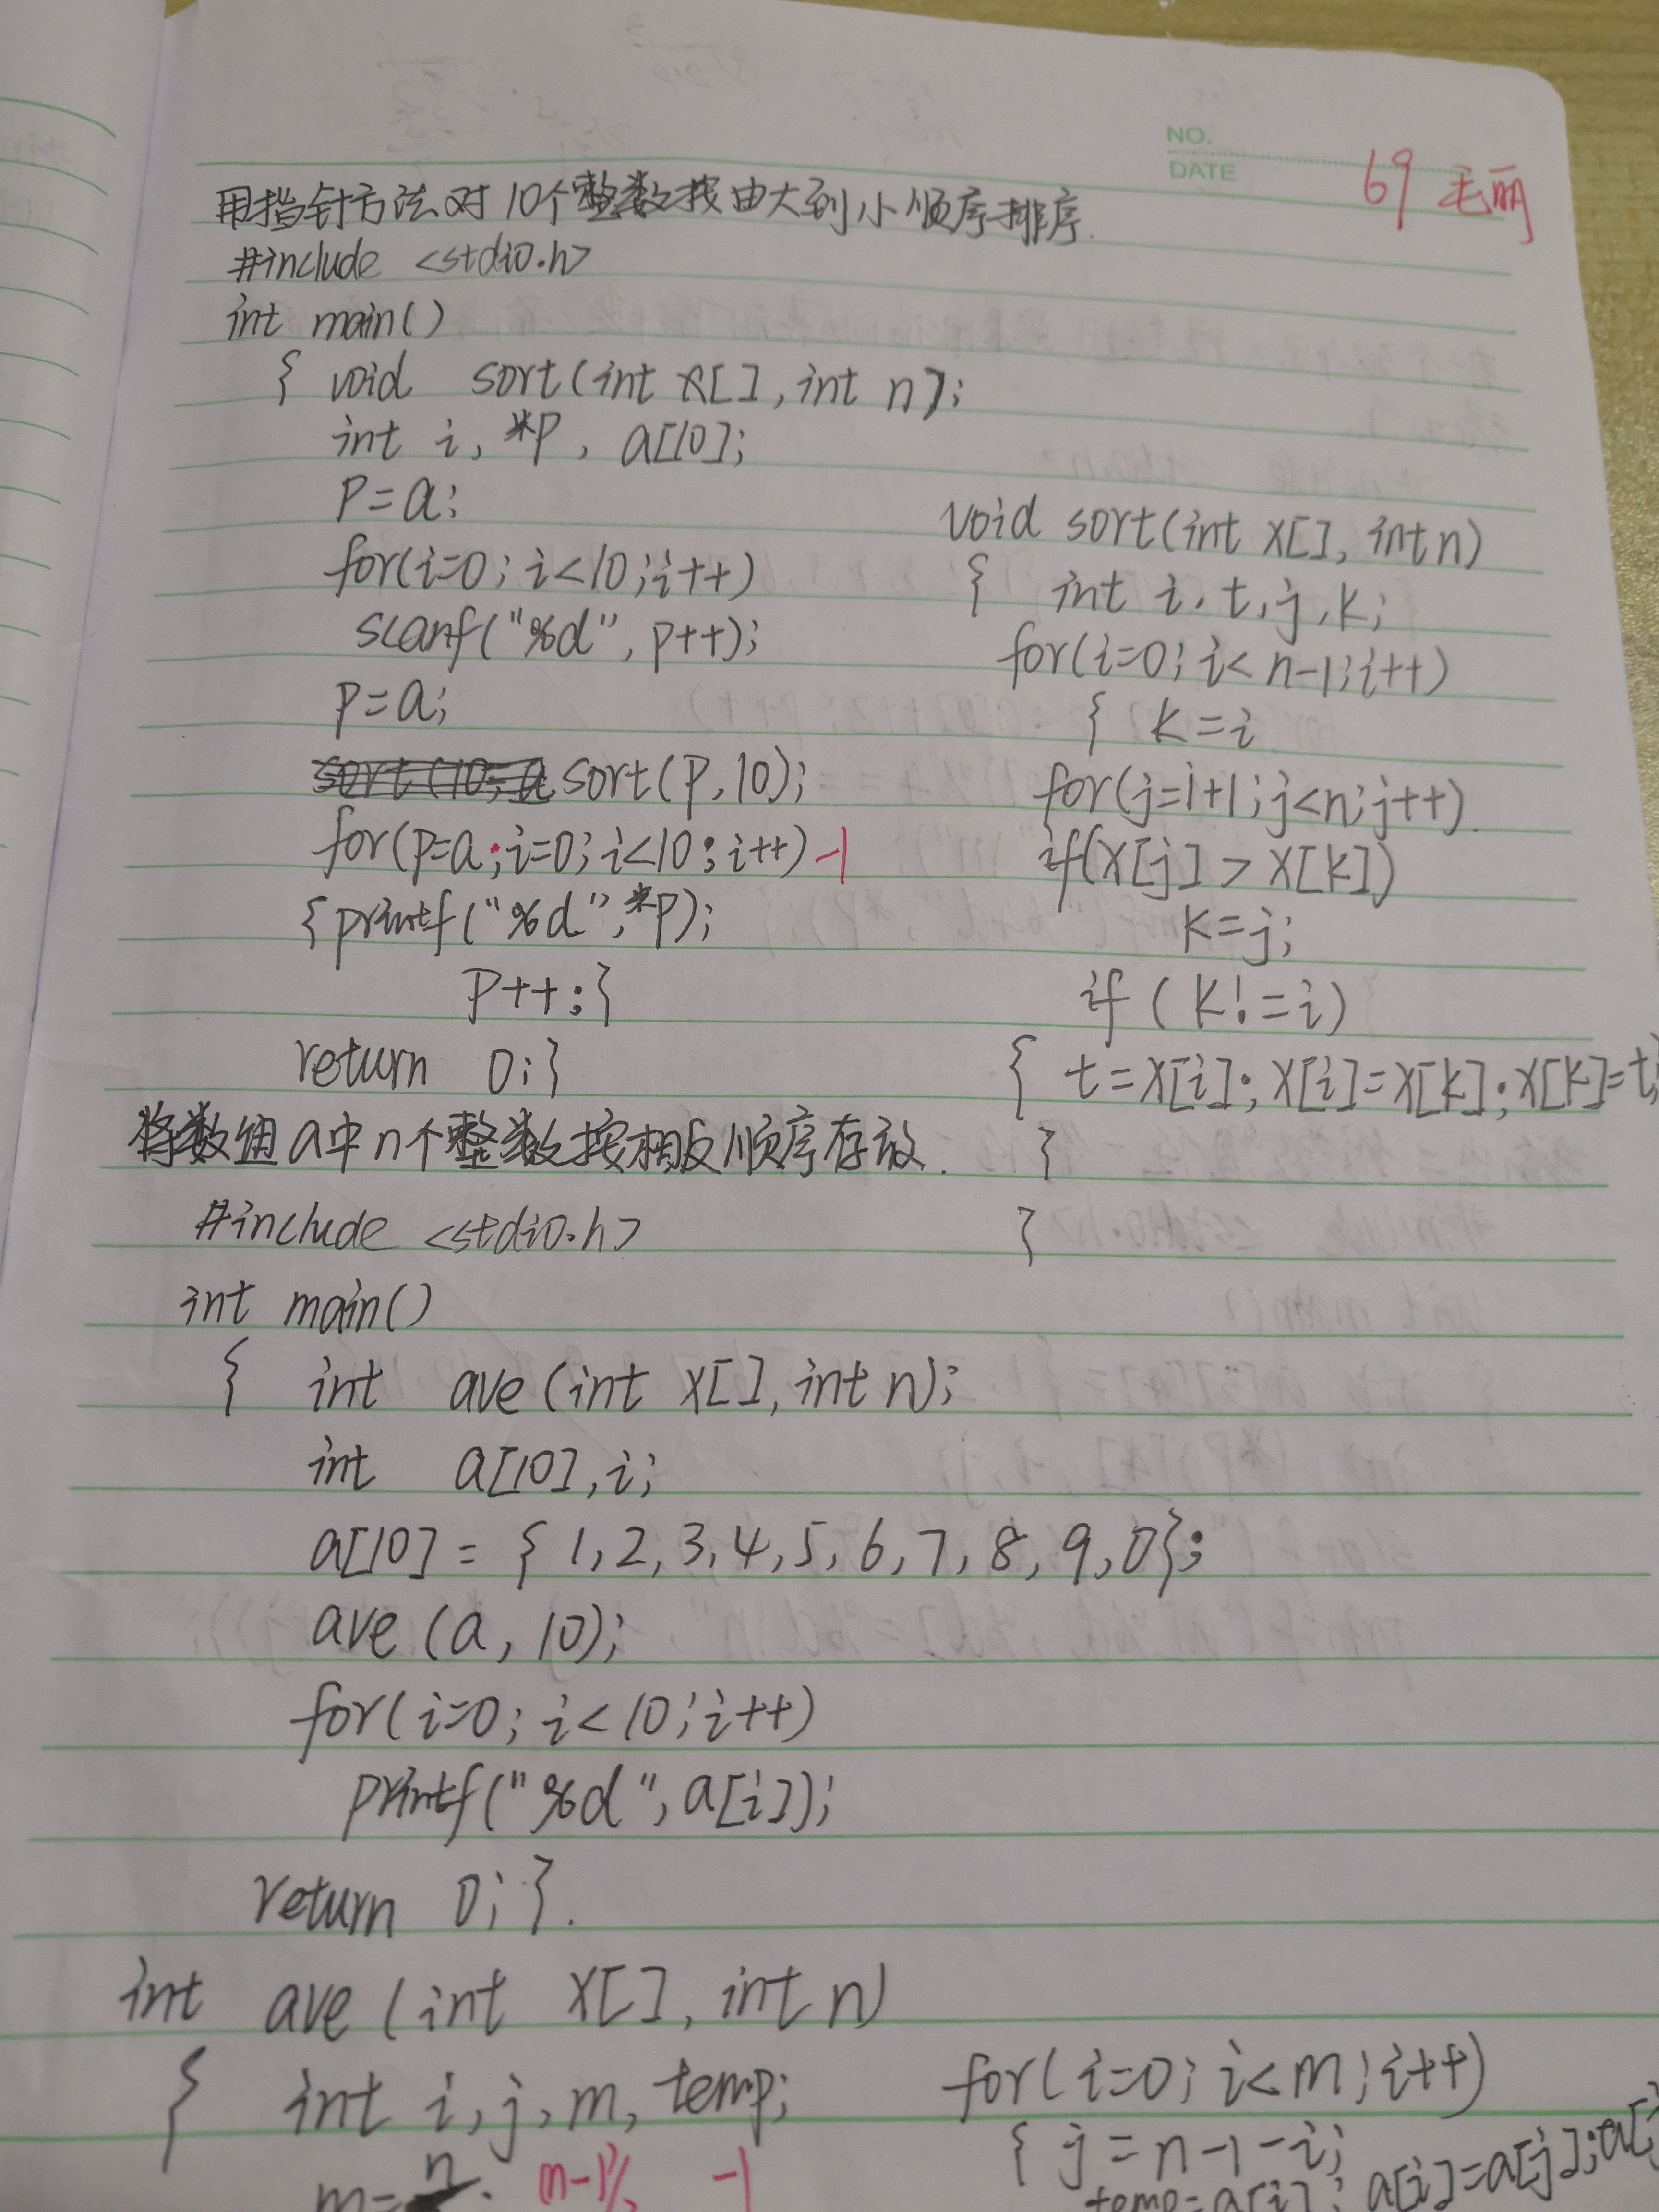 NO.
DATE
69 毛丽
用指针方法对10个整数按由大到小顺序排序.
#include <stdio.h>
int main()
{ void sort(int x[], int n);
int i, *p, a[10];
p=a;
for(i=0; i<10; i++)
scanf("%d", p++);
p=a;
sort(p,10);
for(p=a;i=0; i<10; i++) -1
{printf("%d",*p);
p++;}
return 0;}
void sort(int x[], int n)
{ int i, t, j, k;
for(i=0; i<n-1; i++)
{ k=i
for(j=i+1; j<n; j++).
if(x[j] > x[k])
k=j;
if ( k!=i)
{ t=x[i]; x[i]=x[k]; x[k]=t;
}
}
将数组a中n个整数按相反顺序存放.
#include <stdio.h>
int main()
{ int ave (int x[], int n);
int a[10], i;
a[10] = { 1,2,3,4,5,6,7,8,9,0};
ave (a, 10);
for(i=0; i<10; i++)
printf("%d", a[i]);
return 0; }.
int ave (int x[], int n)
{ int i, j, m, temp;
-1
for(i=0; i<m; i++)
{ j=n-1-i;
temp=a[i]; a[i]=a[j]; a[j